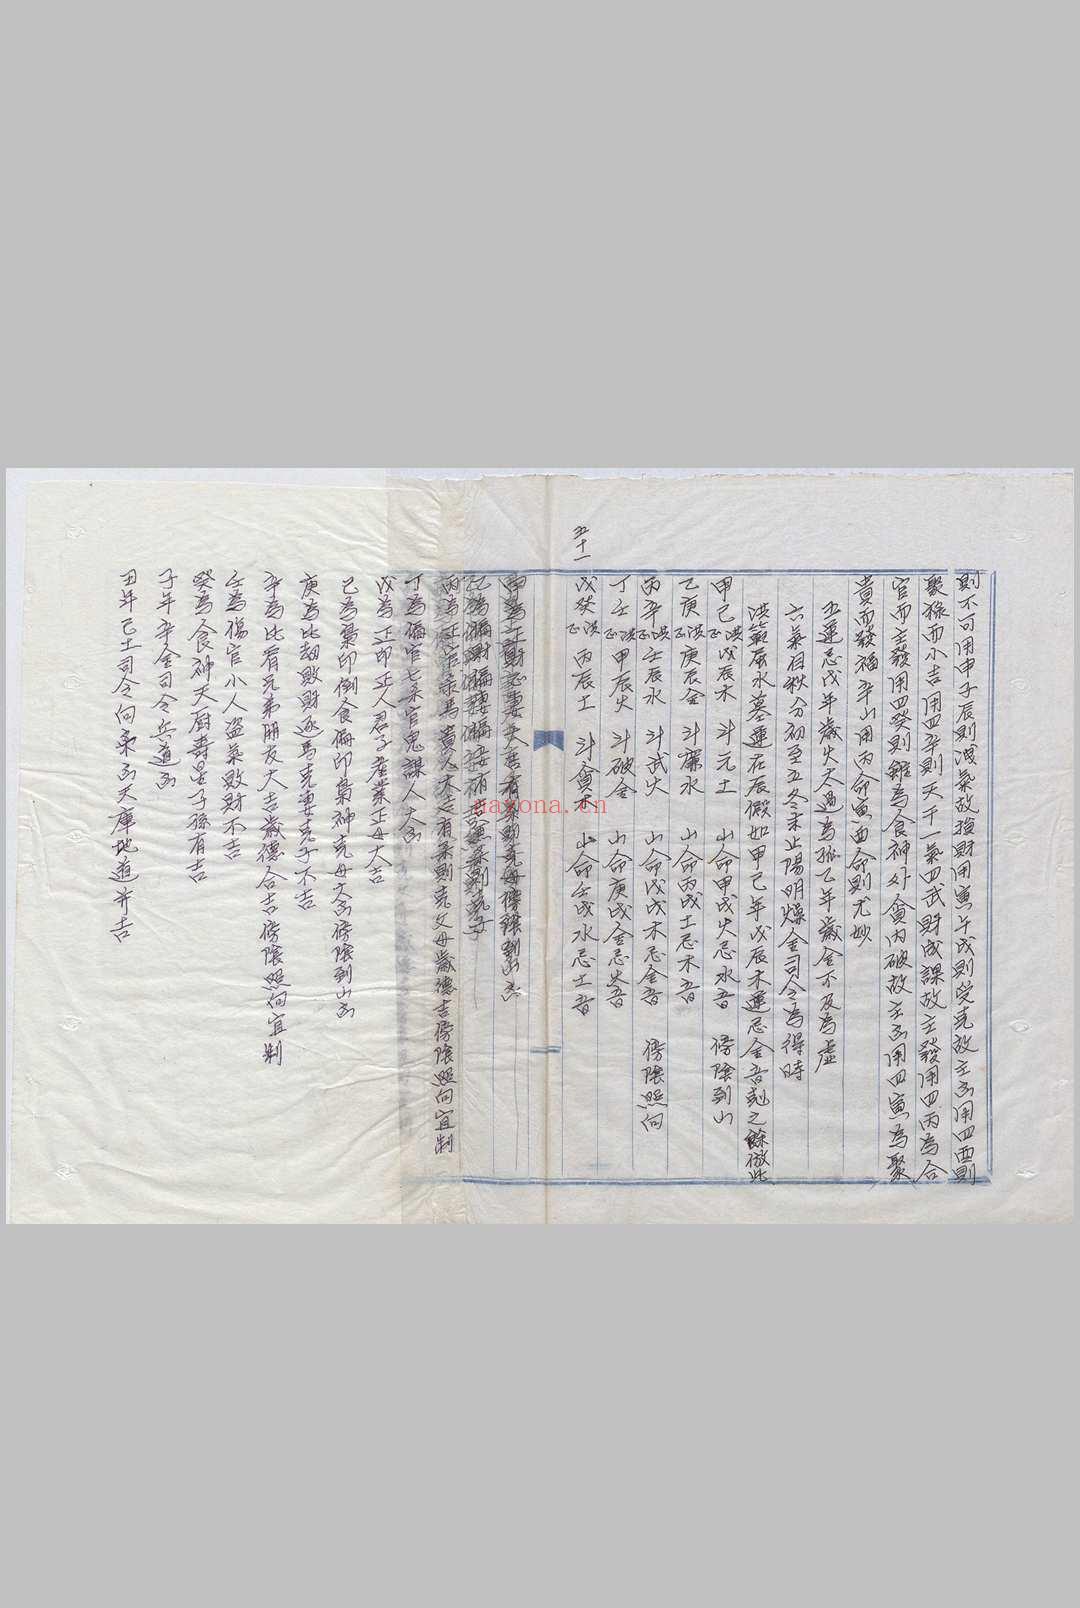 則不可用申子辰則洩氣故損財用寅午戌則受克故主凶用四酉則
聚祿而小吉用四辛則天干一氣四武財成課故主發用四丙為合
官而主發用四癸則雖為食神外貪內破故主凶用四寅為聚
貴而發福辛山用丙命寅酉命則尤妙
五運忌戊年歲火太過為孤乙年歲金不及為虛
六氣自秋分初至立冬末止陽明燥金司令為得時
洪範辰水墓運在辰假如甲己年戊辰木運忌金音剋之餘倣此
甲己 洪正 戊辰木 斗元土 山命甲戌火忌水音 傍陰到山
乙庚 洪正 庚辰金 斗廉水 山命丙戌土忌木音
丙辛 洪正 壬辰水 斗武火 山命戊戌木忌金音 傍陰照向
丁壬 洪正 甲辰火 斗破金 山命庚戌金忌火音
戊癸 洪正 丙辰土 斗貪木 山命壬戌水忌土音
五十一
甲為正財
丙為正官祿馬貴人 有氣則克父母歲德吉傍陰照向宜制
丁為偏官七杀官鬼謀人大凶
戊為正印正人君子產業正母大吉
己為梟印倒食偏印梟神克母大凶傍陰到山凶
庚為比劫敗財逐馬克妻克子不吉
辛為比肩兄弟朋友大吉歲德合吉傍陰照向宜制
壬為傷官小人盜氣敗財不吉
癸為食神天廚壽星子孫有吉
子年辛金司令兵道凶
丑年己土司令向煞凶天庫地道并吉
naxona.cn